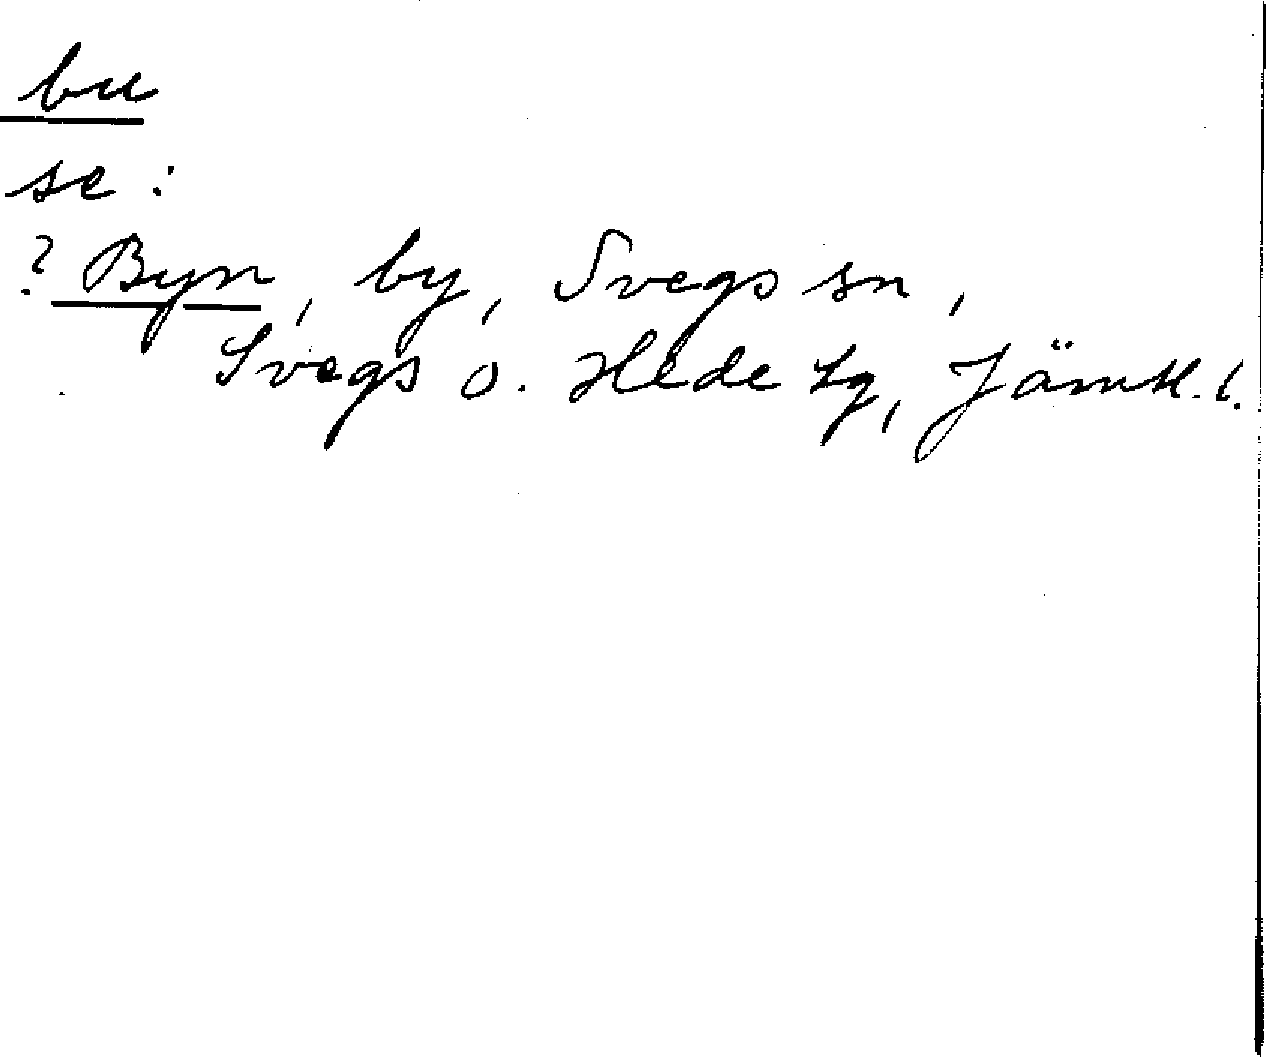 bu
se:
? Byn, by, Svegs sn,
Svegs o. Hede tg, Jämtl. l.